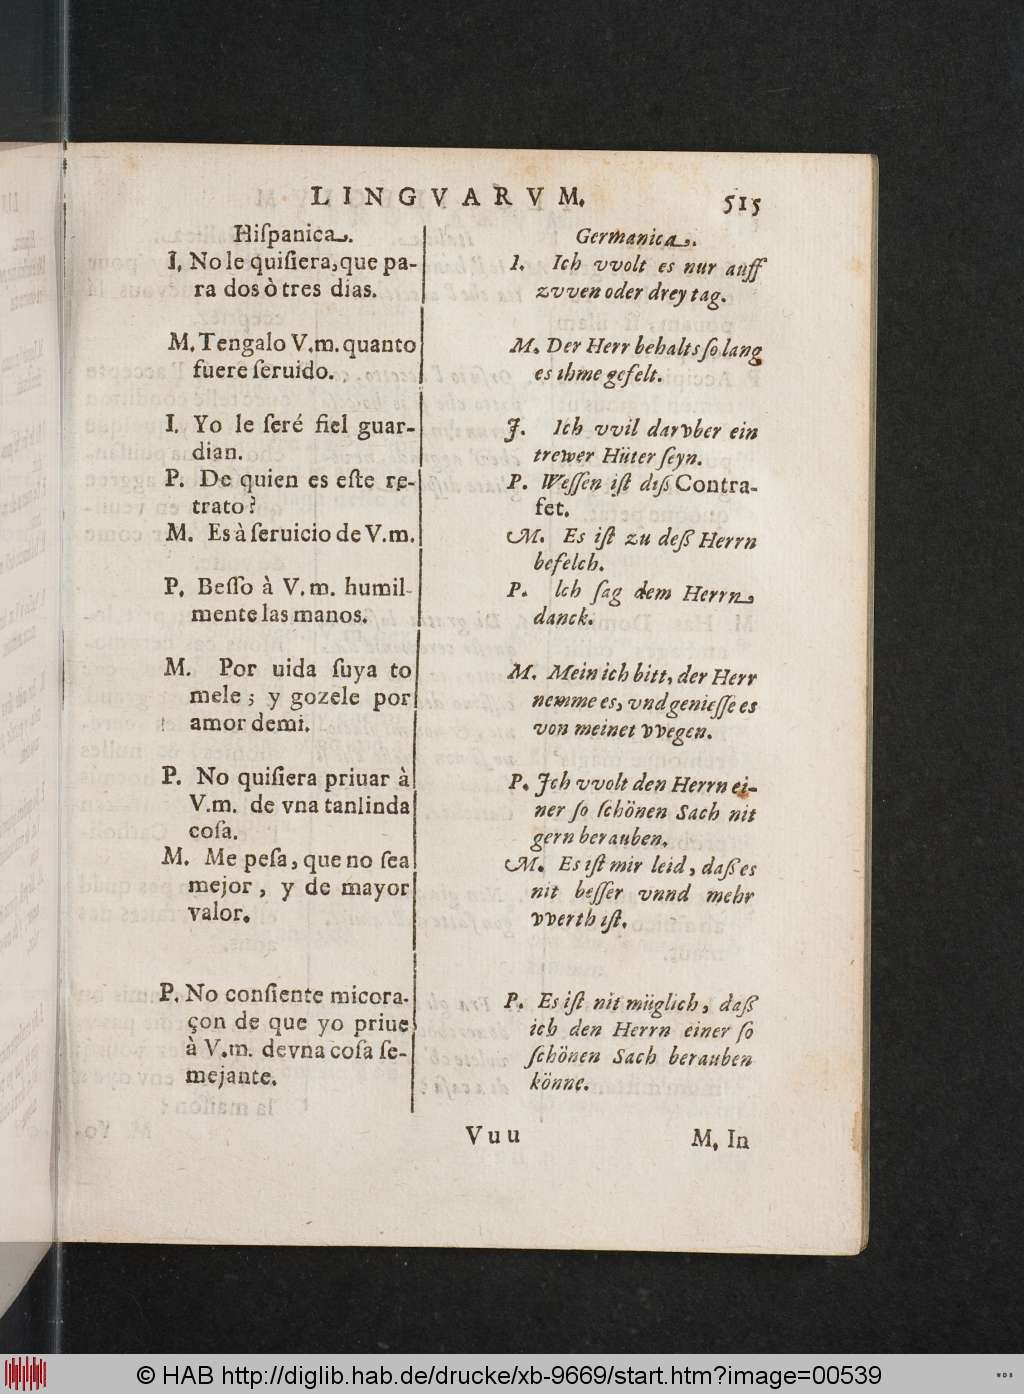 LINGVARVM. 515
Hiſpanica.
I. No le quiſiera, que pa-
ra dos ò tres dias.
M. Tengalo V.m. quanto
fuere ſeruido.
I. Yo le ſeré fiel guar-
dian.
P. De quien es eſte re-
trato?
M. Es à ſeruicio de V.m.
P. Beſſo à V.m. humil-
mente las manos.
M. Por uida ſuya to
mele; y gozele por
amor demi.
P. No quiſiera priuar à
V.m. de vna tanlinda
coſa.
M. Me peſa, que no ſea
mejor, y de mayor
valor.
P. No conſiente micora-
çon de que yo priue
à V.m. devna coſa ſe-
mejante.
Germanica.
I. Ich vvolt es nur auff
zvven oder drey tag.
M. Der Herr behalts ſo lang
es ihme gefelt.
J. Ich vvil darvber ein
trewer Hüter ſeyn.
P. Weſſen iſt diß Contra-
fet.
M. Es iſt zu deß Herrn
befelch.
P. Ich ſag dem Herrn
danck.
M. Mein ich bitt, der Herr
nemme es, vnd genieſſe es
von meinet vvegen.
P. Jch vvolt den Herrn ei-
ner ſo ſchönen Sach nit
gern berauben.
M. Es iſt mir leid, daß es
nit beſſer vnnd mehr
vverth iſt.
P. Es iſt nit müglich, daß
ich den Herrn einer ſo
ſchönen Sach berauben
könne.
Vuu M. In
© HAB http://diglib.hab.de/drucke/xb-9669/start.htm?image=00539